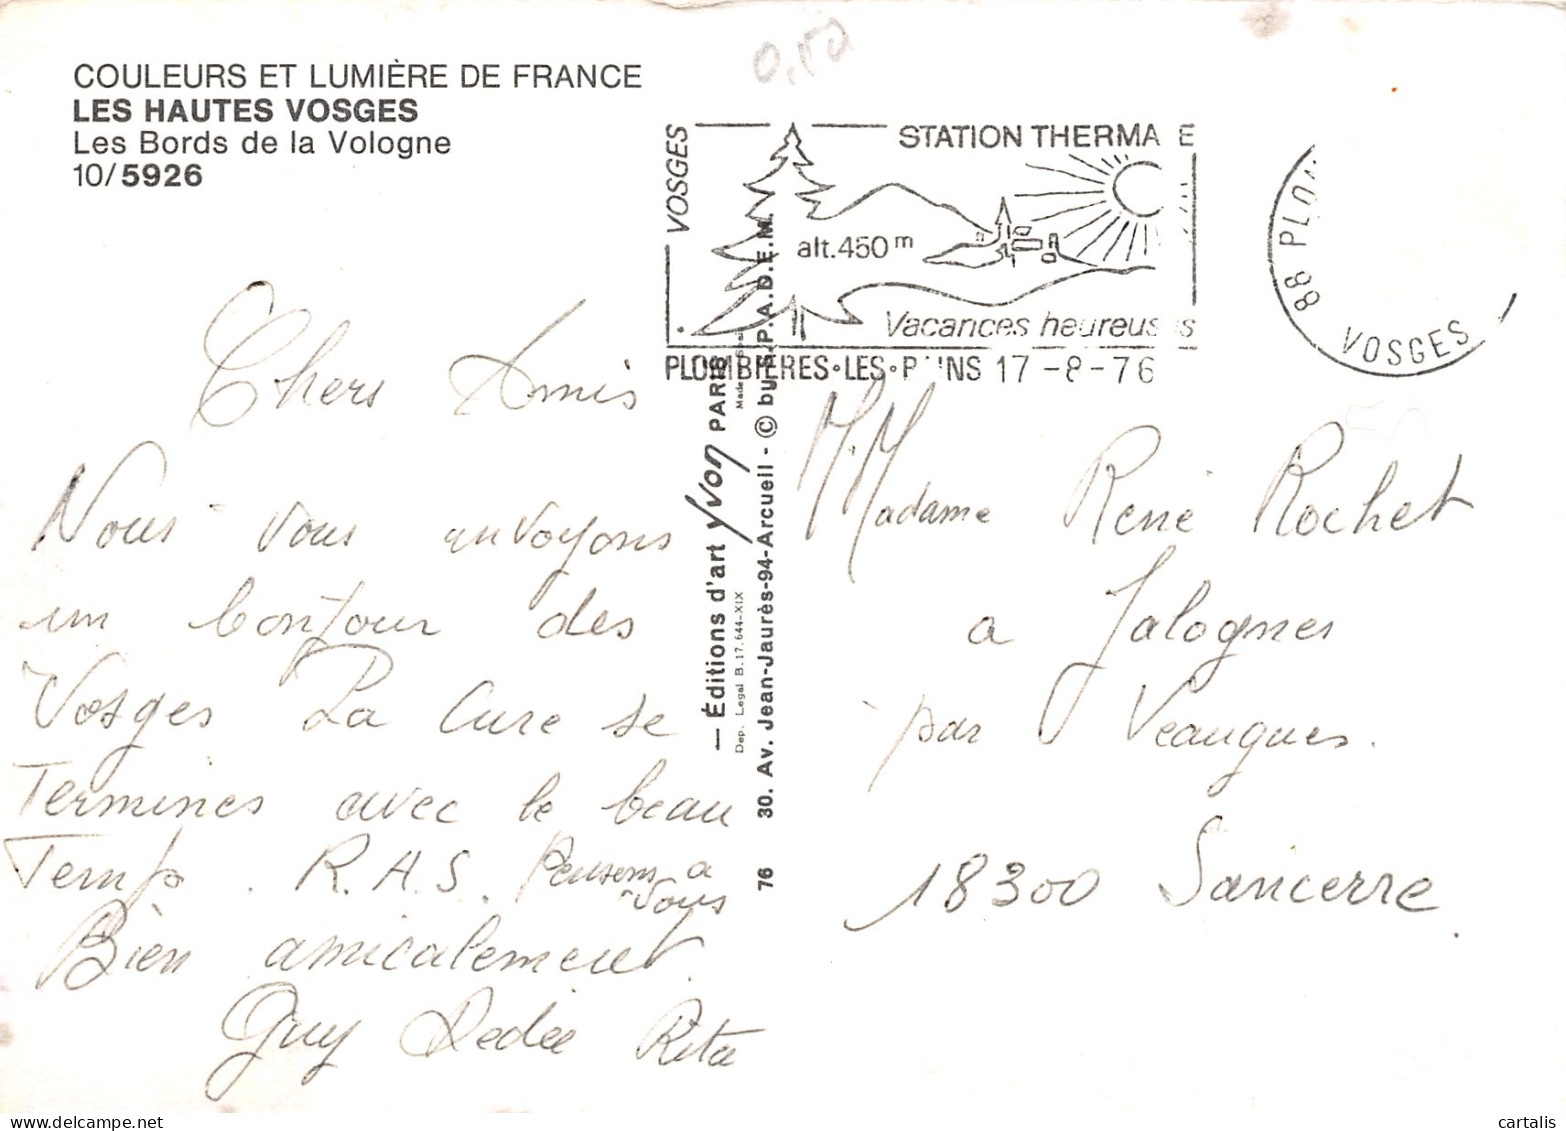 COULEURS ET LUMIÈRE DE FRANCE
LES HAUTES VOSGES
Les Bords de la Vologne
10/5926
0,50
VOSGES
STATION THERMA E
alt.450 m
Vacances heureus s
PLOMBIÈRES•LES•B INS 17 -8-76
88 PLOM
VOSGES
Chers Amis
Nous vous envoyons
un bonjour des
Vosges La Cure se
Termines avec le beau
Temps. R.A.S. Pensons a
vous
Bien amicalement.
Guy Dedée Rita
— Éditions d'art yvon PARIS
Dep. Legal B. 17.644-XIX
Made Spai
76 30. Av. Jean-Jaurès-94-Arcueil - © by S.P.A.D.E.M.
M. Madame René Rochet
a Jalognes
par Veaugues.
18300 Sancerre.
cartalis
delcampe.net